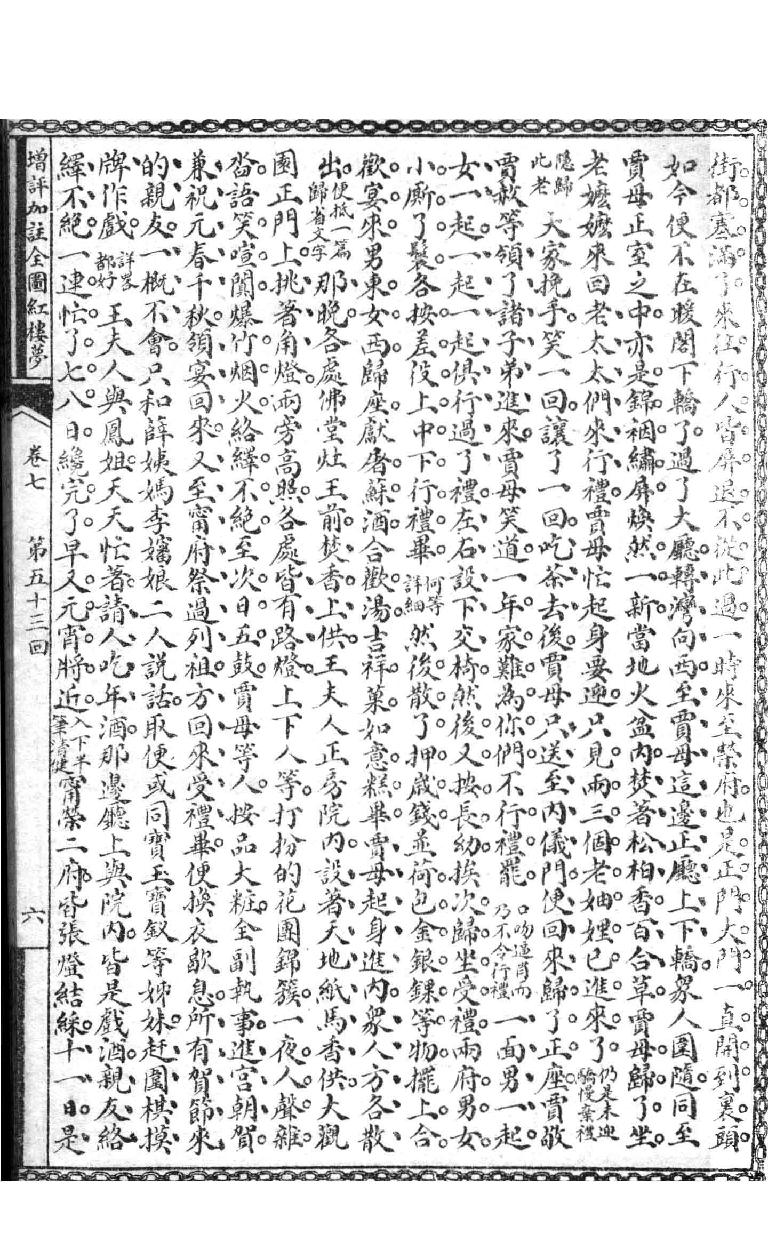 街都塞滿了來往行人皆屏退不從此過一時來至榮府也是正門大門一直開到裏頭
如今便不在暖閣下轎了過了大廳轉灣向西至賈母這邊正廳上下轎眾人圍隨同至
賈母正室之中亦是錦裀繡屏煥然一新當地火盆內焚著松柏香百合草賈母歸了坐
老嬤嬤來回老太太們來行禮賈母忙起身要迎只見兩三個老妯娌已進來了仍是未迎驕慢棄禮
隱歸此老大家挽手笑一回讓了一回吃茶去後賈母只送至內儀門便回來歸了正座賈敬
賈赦等領了諸子弟進來賈母笑道一年家難為你們不行禮罷口吻逼肖而乃不令行禮一面男一起
女一起一起一起俱行過了禮左右設下交椅然後又按長幼挨次歸坐受禮兩府男女
小廝了鬟各按差役上中下行禮畢何等詳細然後散了押歲錢並荷包金銀錁等物擺上合
歡宴來男東女西歸座獻屠蘇酒合歡湯吉祥菓如意糕畢賈母起身進內眾人方各散
出便抵一篇歸省文字那晚各處佛堂灶王前焚香上供王夫人正房院內設著天地紙馬香供大觀
園正門上挑著角燈兩旁高照各處皆有路燈上下人等打扮的花團錦簇一夜人聲雜
沓語笑喧闐爆竹烟火絡繹不絕至次日五鼓賈母等人按品大粧全副執事進宮朝賀
兼祝元春千秋領宴回來又至甯府祭過列祖方回來受禮畢便換衣歇息所有賀節來
的親友一概不會只和薛姨媽李嬸娘二人說話取便或同寶玉寶釵等姊妹赶圍棋摸
牌作戲詳畧都好王夫人與鳳姐天天忙著請人吃年酒那邊廳上與院內皆是戲酒親友絡
繹不絕一連忙了七八日纔完了早又元宵將近入下半筆清健甯榮二府皆張燈結綵十一日是
增評加註全圖紅樓夢
卷七 第五十三回
六